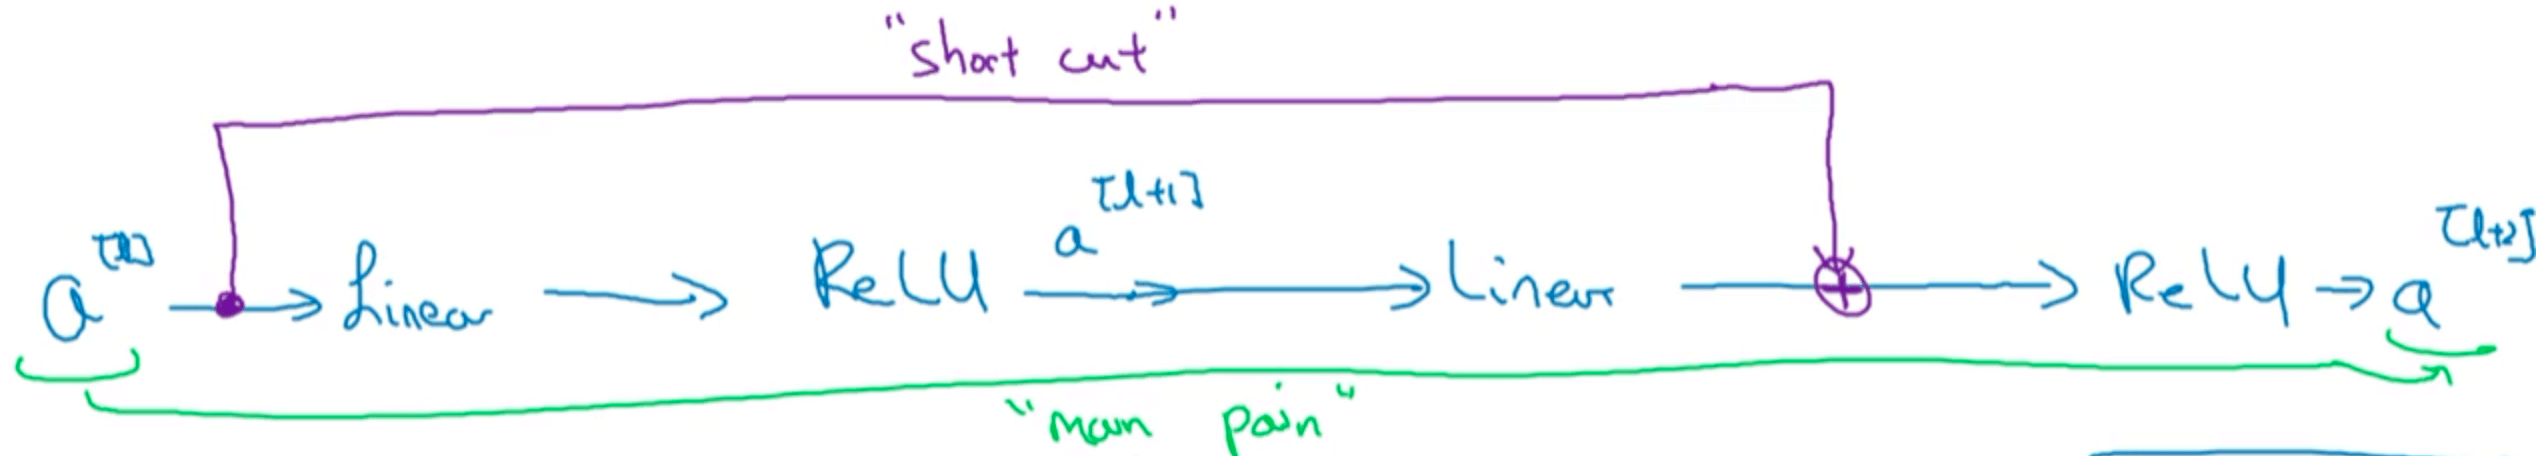 "short cut"
a[l] → Linear → ReLU a[l+1] → Linear ⊕ → ReLU → a[l+2]
"main pain"